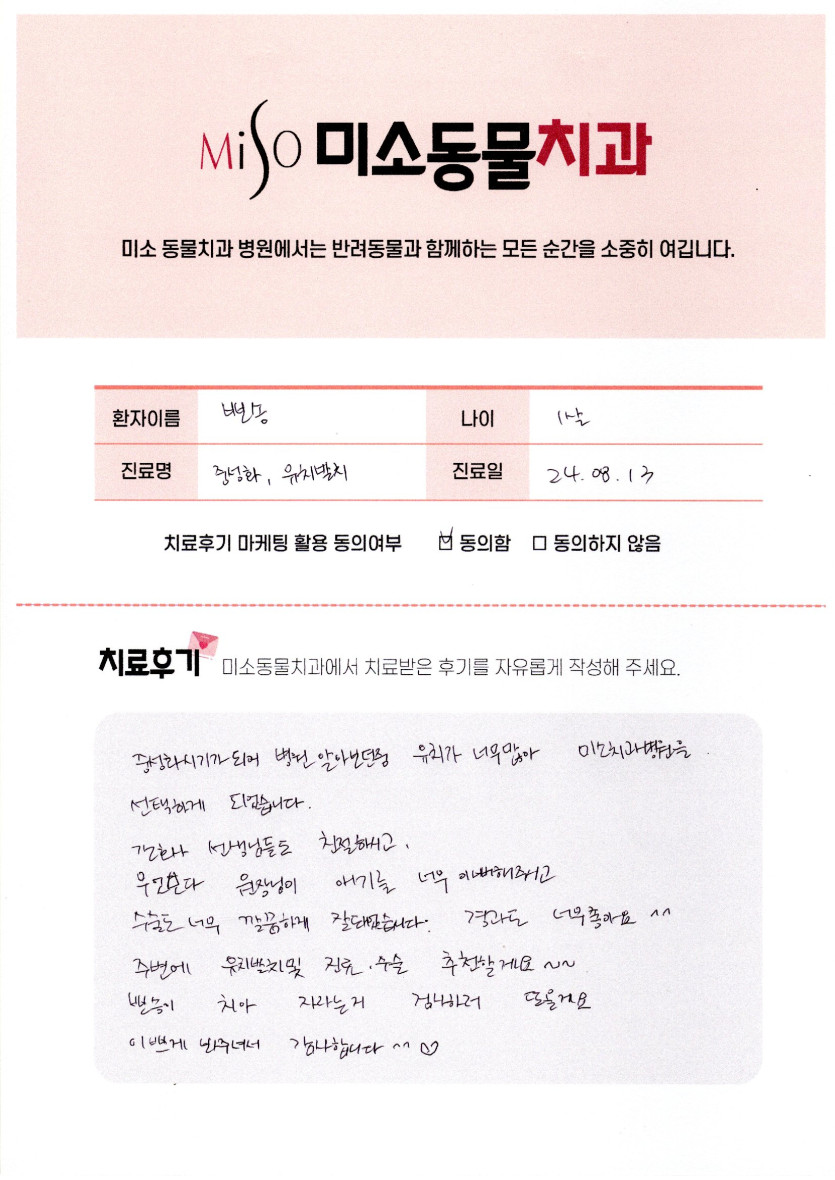 MiSO 미소동물치과
미소 동물치과 병원에서는 반려동물과 함께하는 모든 순간을 소중히 여깁니다.
환자이름 나이 1살
진료명 중성화, 유치발치 진료일 24.08.13
치료후기 마케팅 활용 동의여부 ☑ 동의함 □ 동의하지 않음
치료후기 미소동물치과에서 치료받은 후기를 자유롭게 작성해 주세요.
중성화시기가 되어 병원 알아보던중 유치가 너무많아 미소치과병원을
선택하게 되었습니다.
간호사 선생님들도 친절하시고,
무엇보다 원장님이 애기를 너무 이뻐해주시고
수술도 너무 깔끔하게 잘되었습니다. 결과도 너무좋아요 ^^
주변에 유치발치및 진료, 수술 추천할게요 ~~
치아 자라는거 검사하러 또올게요
이쁘게 봐주셔서 감사합니다 ^^ ♡